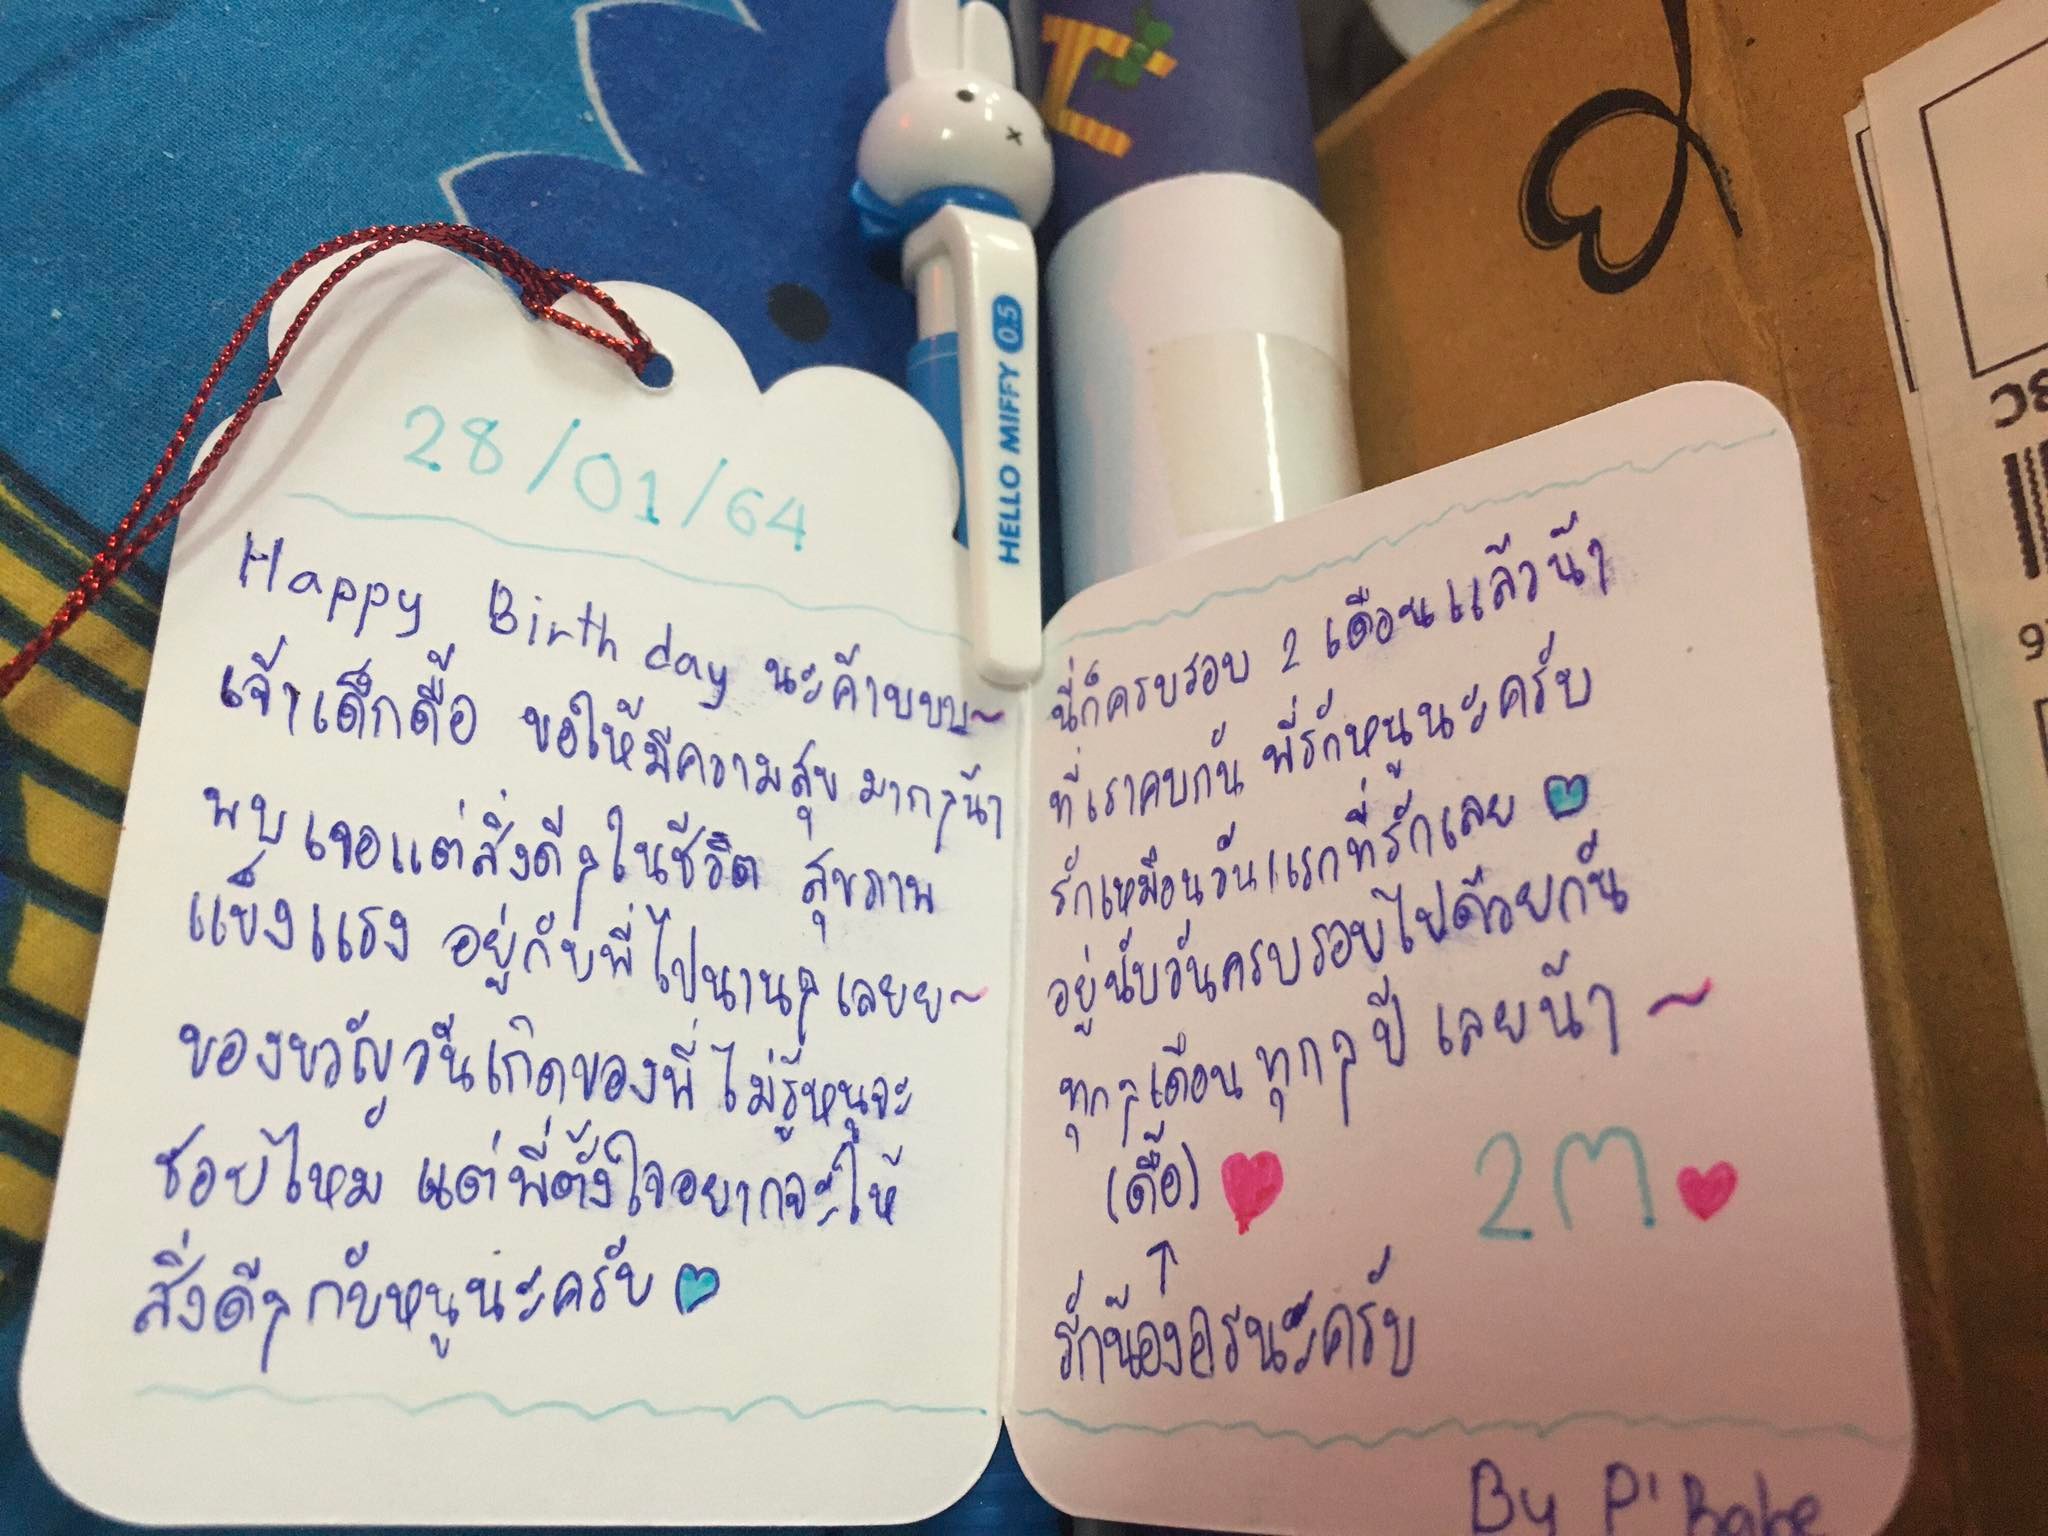 HELLO MIFFY 0.5
28/01/64
Happy Birth day นะค้าบบบ~
เจ้าเด็กดื้อ ขอให้มีความสุข มากๆน้า
พบเจอแต่สิ่งดีๆในชีวิต สุขภาพ
แข็งแรง อยู่กับพี่ไปนานๆเลยย~
ของขวัญวันเกิดของพี่ ไม่รู้หนูจะ
ชอบไหม แต่พี่ตั้งใจอยากจะให้
สิ่งดีๆกับหนูนะครับ
นี่ก็ครบรอบ 2 เดือนแล้วน้า
ที่เราคบกัน พี่รักหนูนะครับ
รักเหมือนวันแรกที่รักเลย
อยู่นับวันครบรอบไปด้วยกัน
ทุกๆเดือน ทุกๆปี เลยน้า ~
(ดื้อ)
2m
รักน้องอรนะครับ
By P'Babe